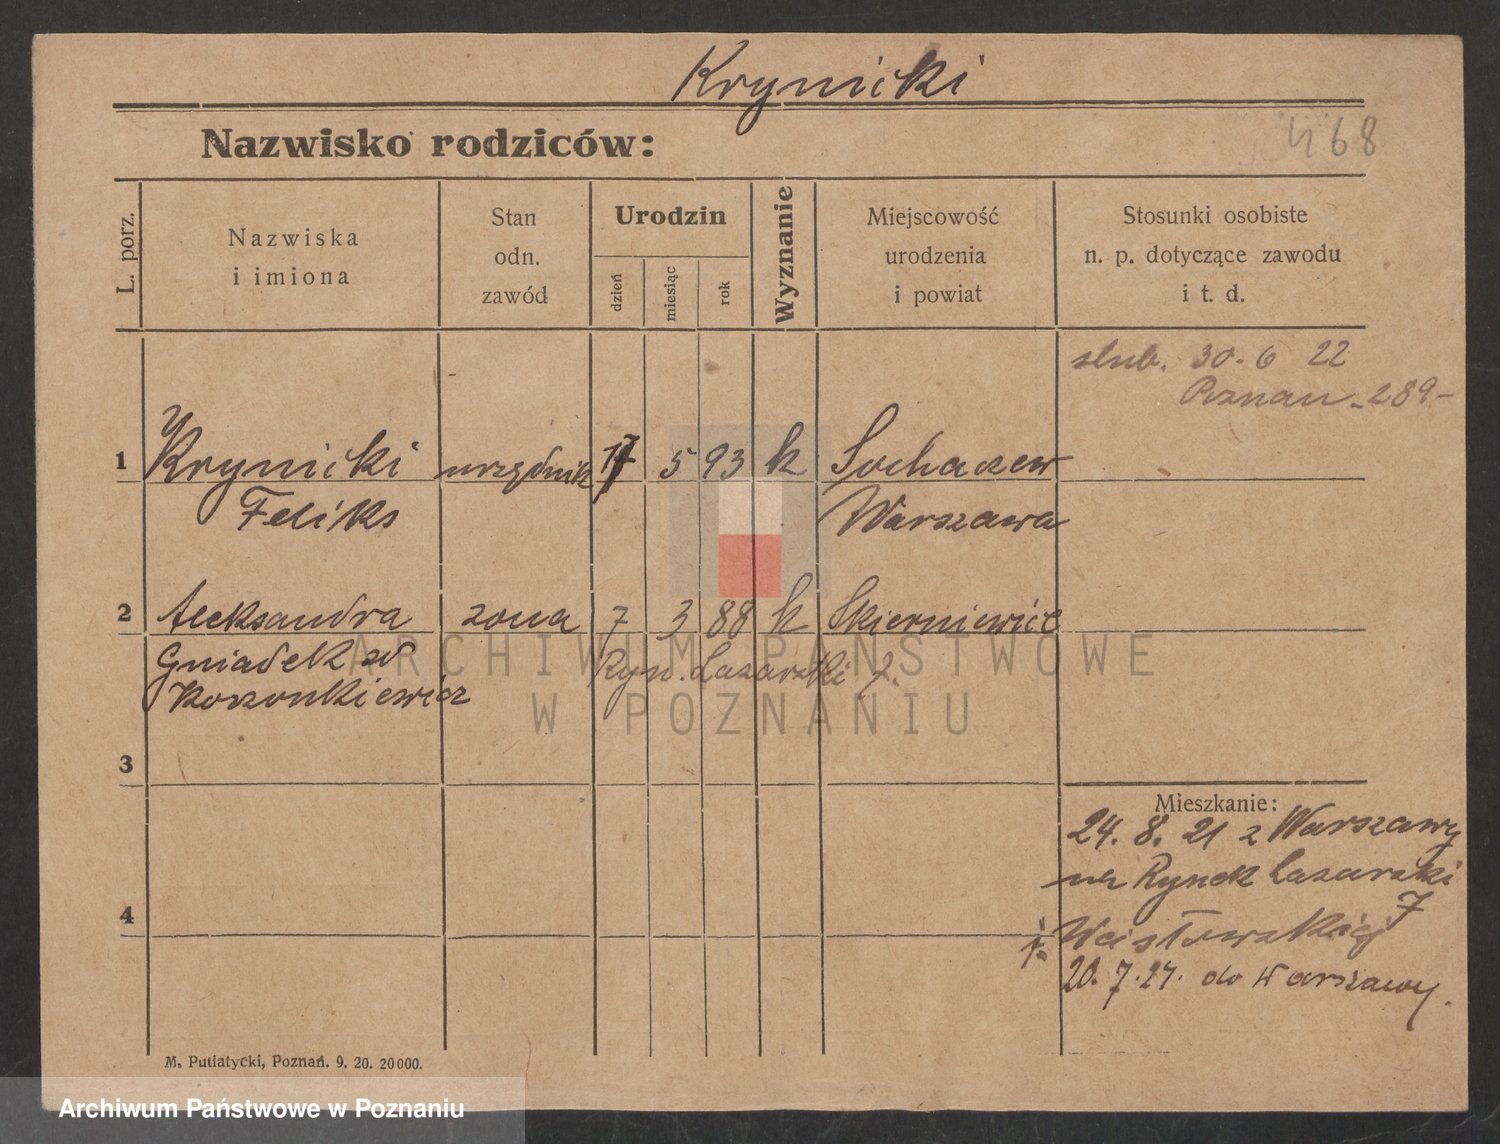 Krynicki
Nazwisko rodziców:
468
L. porz.
Nazwiska
i imiona
Stan
odn.
zawód
Urodzin
dzień
miesiąc
rok
Wyznanie
Miejscowość
urodzenia
i powiat
Stosunki osobiste
n. p. dotyczące zawodu
i t. d.
slub. 30. 6 22
Poznan - 289-
1 Krynicki urzędnik 17 5 93 k Sochaczew
Feliks Warszawa
2 Aleksandra zona 7 3 88 k Skierniewice
Gniadek Ryn. Lazarski 7.
3
Mieszkanie:
24. 8. 21 z Warszawy
na Rynek Lazarski
7
4
20. 7. 27. do Warszawy.
M. Putiatycki, Poznań. 9. 20. 20000.
ARCHIWUM PAŃSTWOWE
W POZNANIU
Archiwum Państwowe w Poznaniu